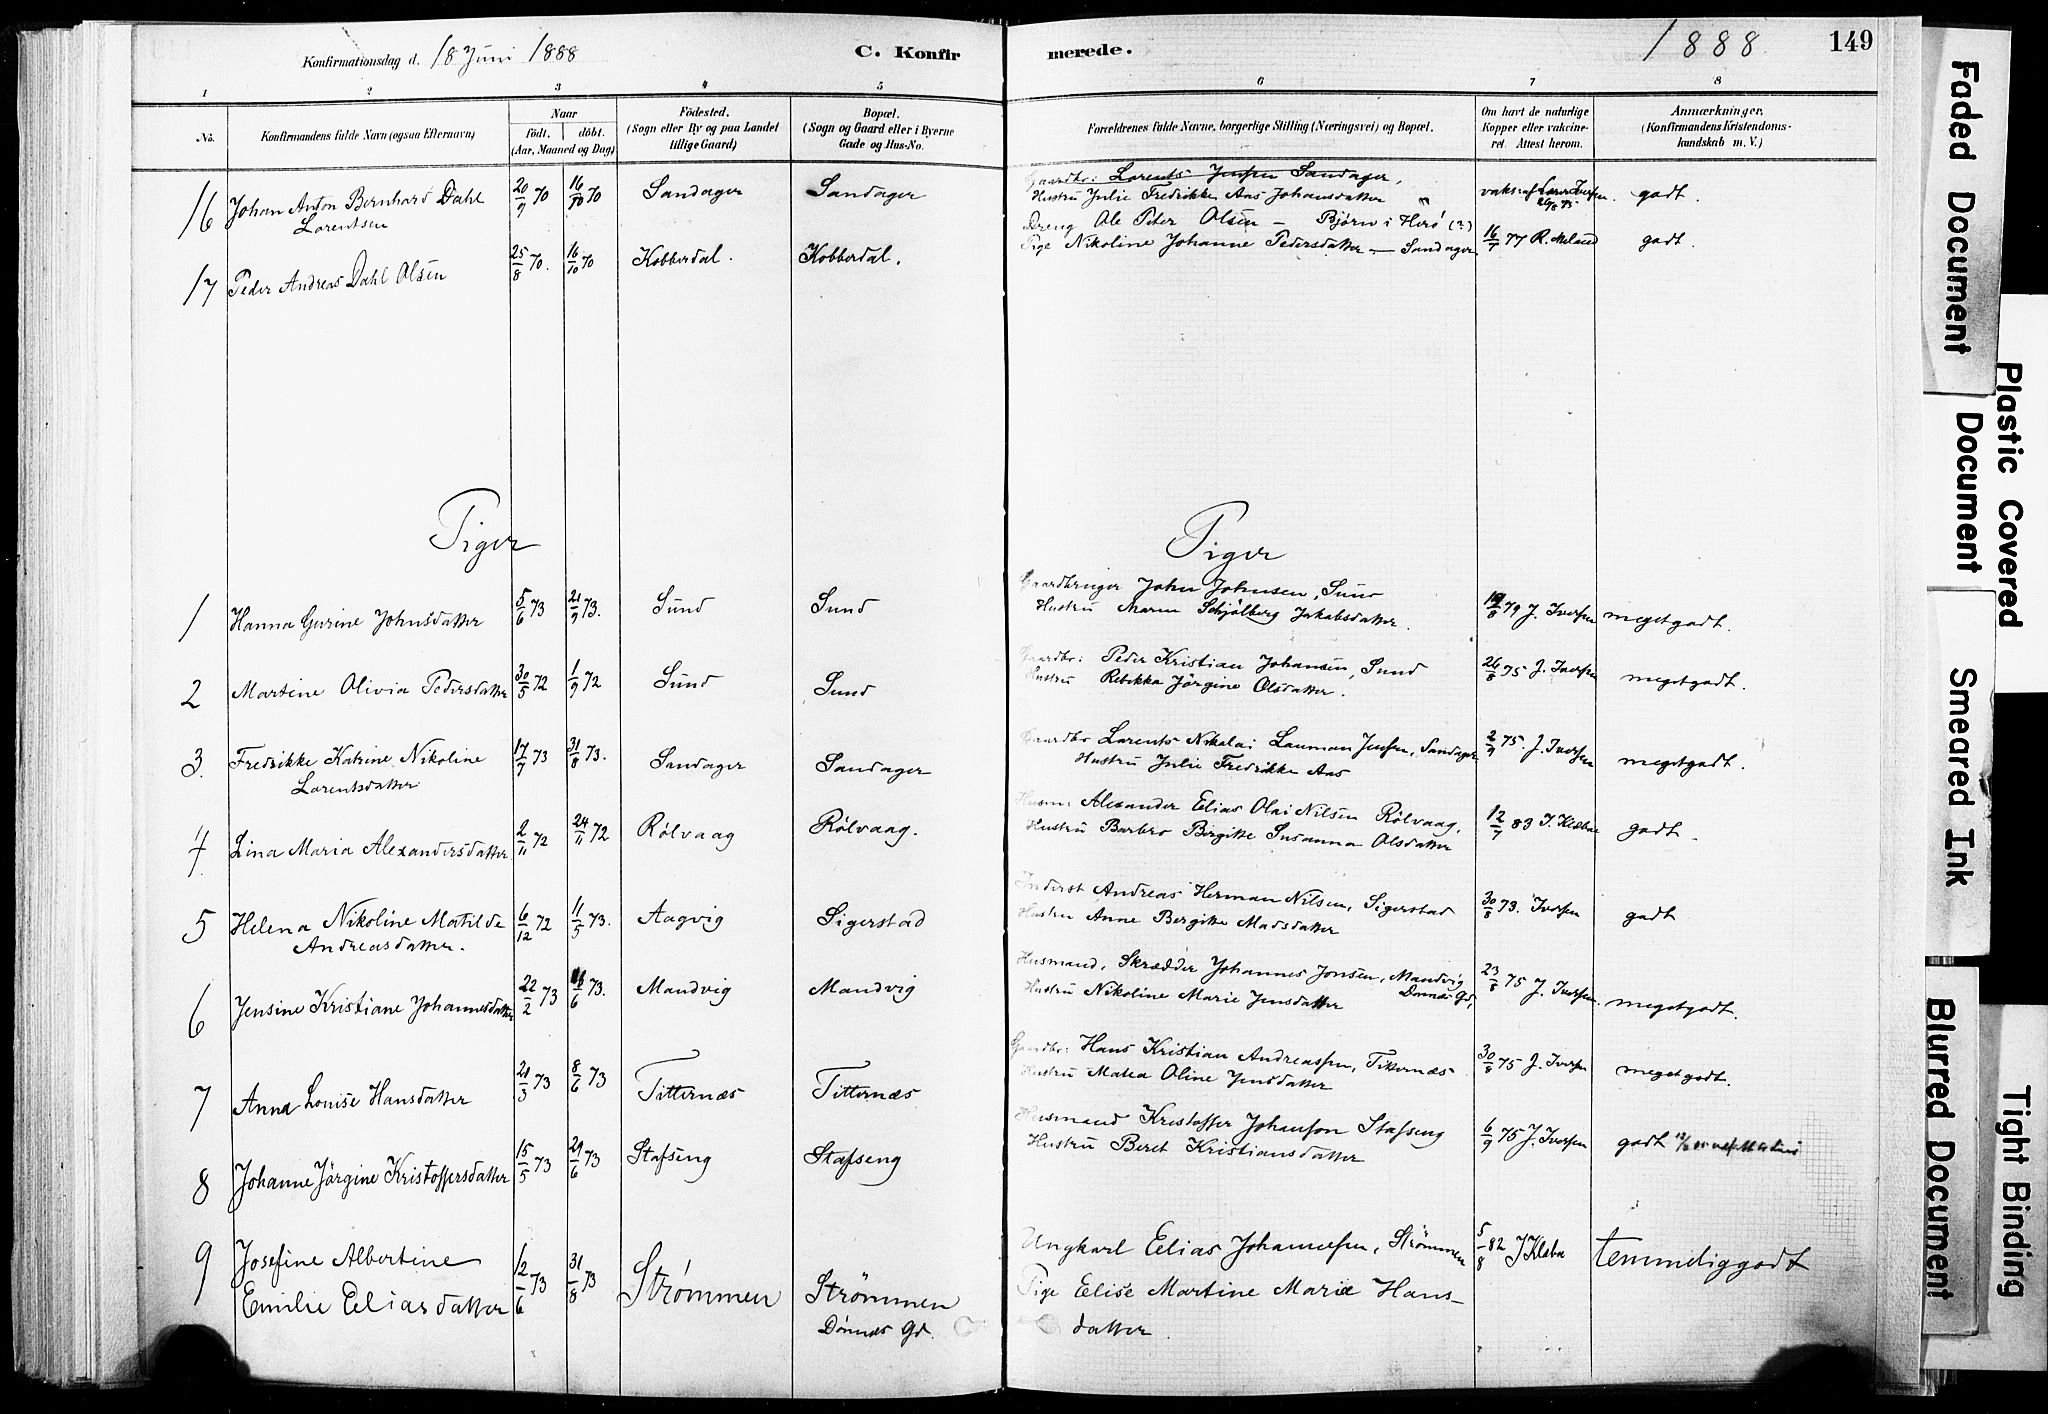 Konfirmationsdag d. 18 Juni 1888
C. Konfirmerede.
1888
149
1 2 3 4 5 6 7 8
No.
Konfirmandens fulde Navn (ogsaa Efternavn)
Naar
födt. döbt.
(Aar, Maaned og Dag)
Födested.
(Sogn eller By og paa Landet
tillige Gaard)
Bopæl.
(Sogn og Gaard eller i Byerne
Gade og Hus-No.
Forældrenes fulde Navne, borgerlige Stilling (Næringsvei) og Bopæl.
Om havt de naturlige
Kopper eller vakcine-
ret. Attest herom.
Anmærkninger.
(Konfirmandens Kristendoms-
kundskab m. V.)
16 Johan Anton Bernhard Dahl
Lorentsen
20/9 70 16/10 70 Sandager Sandager
Gaardbr: Lorents Jensen Sandager,
Hustru Julie Fredrikke Aas Johansdatter "
vaks. af Iversen godt.
17 Peder Andreas Dahl Olsen
25/8 70. 16/10 70 Kobberdal. Kobberdal.
Dreng Ole Peter Olsen - Bjørn i Herø (?)
Pige Nikoline Johanne Pedersdatter - Sandager
16/7 77 R. Meland godt.
Piger
Piger
1 Hanna Gurine Johnsdatter 5/6 73 21/9 73. Sund Sund
Gaardbruger John Johnsen, Sund
Hustru Maren Schjølberg Jakobsdatter.
/8 79 J. Iversen megetgodt.
2 Martine Olivia Pedersdatter 30/5 72 1/9 72 Sund Sund
Gaardbr: Peder Kristian Johansen, Sund
Hustru Rebekka Jörgine Olsdatter.
26/8 75 J. Iversen megetgodt.
3. Fredrikke Katrine Nikoline
Lorentsdatter
17/7 73 31/8 73. Sandager Sandager
Gaardbr Lorents Nikolai Lauman Jensen, Sandager
Hustru Julie Fredrikke Aas
2/9 75. J. Iversen megetgodt.
4 Lina Maria Alexandersdatter 2/11 72 24/11 72 Rølvaag Rølvaag.
Husm: Alexander Elias Olai Nilsen Rølvaag,
Hustru Barbro Bergitte Susanna Olsdatter
12/7 83 J. Klæbo godt.
5 Helena Nikoline Matilde
Andreasdatter.
6/12 72 11/5 73. Aagvig Sigerstad
Inderst Andreas Herman Nilsen, Sigerstad
Hustru Anne Bergitte Madsdatter
30/8 73. Iversen godt
6 Jensine Kristiane Johannesdatter 22/2 73 /6 73. Mandvig Mandvig
Husmand, Skrædder Johannes Jonsen, Mandvig
Hustru Nikoline Marie Jensdatter Dønnes Gd,
23/8 75 J. Iversen. megetgodt.
7 Anna Louise Hansdatter 21/3 73 8/6 73 Titternæs Titternæs
Gaardbr: Hans Kristian Andreassen, Titternæs
Hustru Matea Oline Jensdatter
30/8 75 J. Iversen megetgodt.
8 Johanne Jörgine Kristoffersdatter 15/5 73 29/6 73 Stafseng Stafseng
Husmand Kristoffer Johanson Stafseng
Hustru Beret Kristiansdatter
6/9 75 J. Iversen godt
9 Josefine Albertine
Emilie Eeliasdatter
12/6 73 31/8 73 Strømmen Strømmen
Dønnes Gd.
Ungkarl Eelias Johannesen, Strømmen
Pige Eelise Martine Marie Hans-
datter.
5/8 82 J Klæbo temmeliggodt
Faded Document
Plastic Covered
Document
Smeared Ink
Blurred Document
Tight Binding